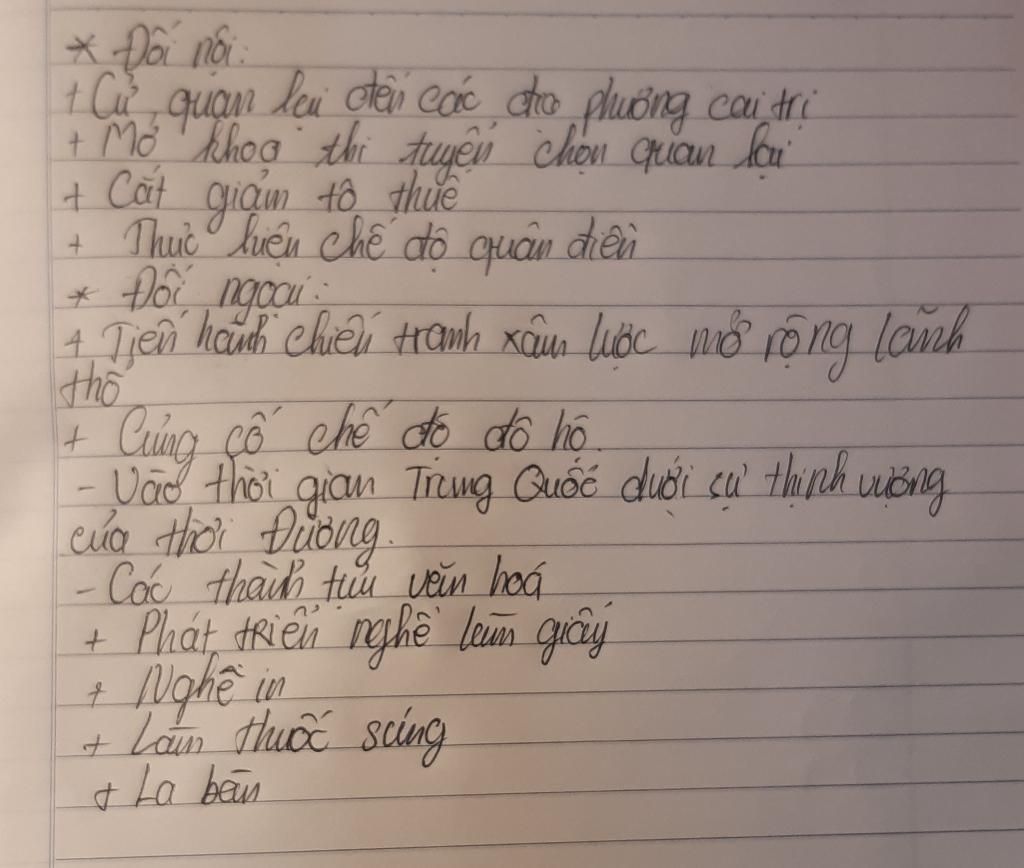 * Đối nội:
+ Cử quan lại đến các địa phương cai trị
+ Mở khoa thi tuyển chọn quan lại
+ Cắt giảm tô thuế
+ Thực hiện chế độ quân điền
* Đối ngoại:
+ Tiến hành chiến tranh xâm lược mở rộng lãnh
thổ
+ Củng cố chế độ đô hộ.
- Vào thời gian Trung Quốc dưới sự thịnh vượng
của thời Đường.
- Các thành tựu văn hoá
+ Phát triển nghề làm giấy
+ Nghề in
+ Làm thuốc súng
+ La bàn